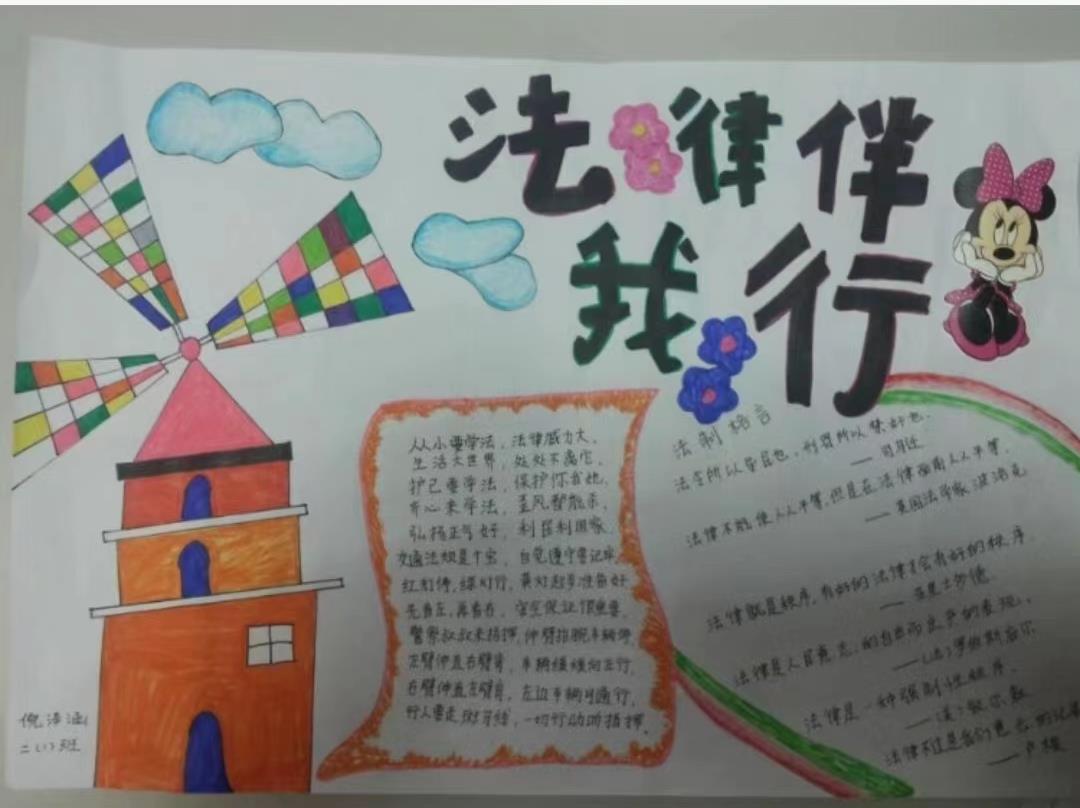 法律伴
我行
人从小要学法，法律威力大。
生活大世界，处处不离它。
护己要学法，保护你我她，
开心来学法，歪风都能杀，
弘扬正气好，利民利国家。
交通法规是个宝，自觉遵守要记牢。
红灯停，绿灯行，黄灯起步准备好
先看左，再看右，安全保证很重要。
警察叔叔来指挥，伸臂抬腕车辆停
左臂伸直右臂弯，车辆缓缓向左行。
右臂伸直左臂弯，左边车辆可通行，
行人要走斑马线，一切行动听指挥。
法制格言
法令所以导民也，刑罚所以禁奸也。
——司马迁
法律不能使人人平等，但是在法律面前人人平等。
——英国法学家 波洛克
法律就是秩序，有好的法律才会有好的秩序
——亚里士多德
法律是人民意志的自由而庄严的表现。
——（法）罗伯斯庇尔
法律是一种强制性秩序
法律不过是我们意志的记录
——卢梭
二（1）班